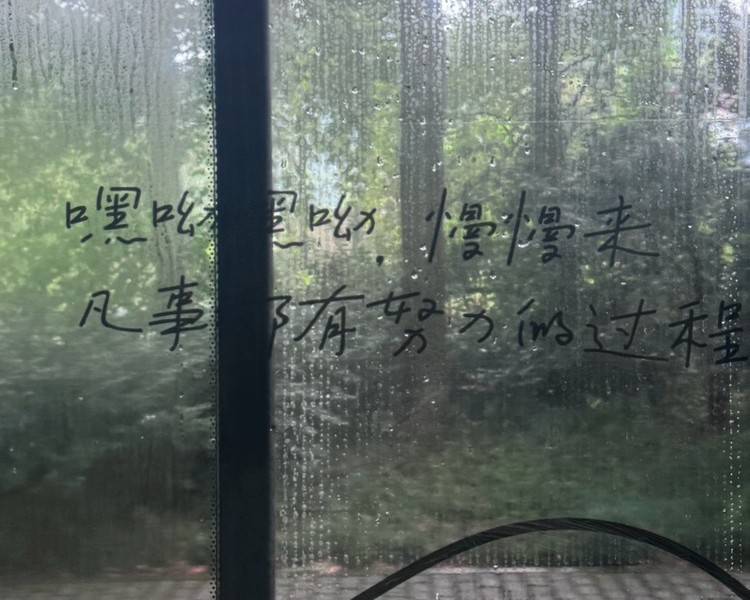 嘿呦嘿呦.慢慢来
凡事都有努力的过程